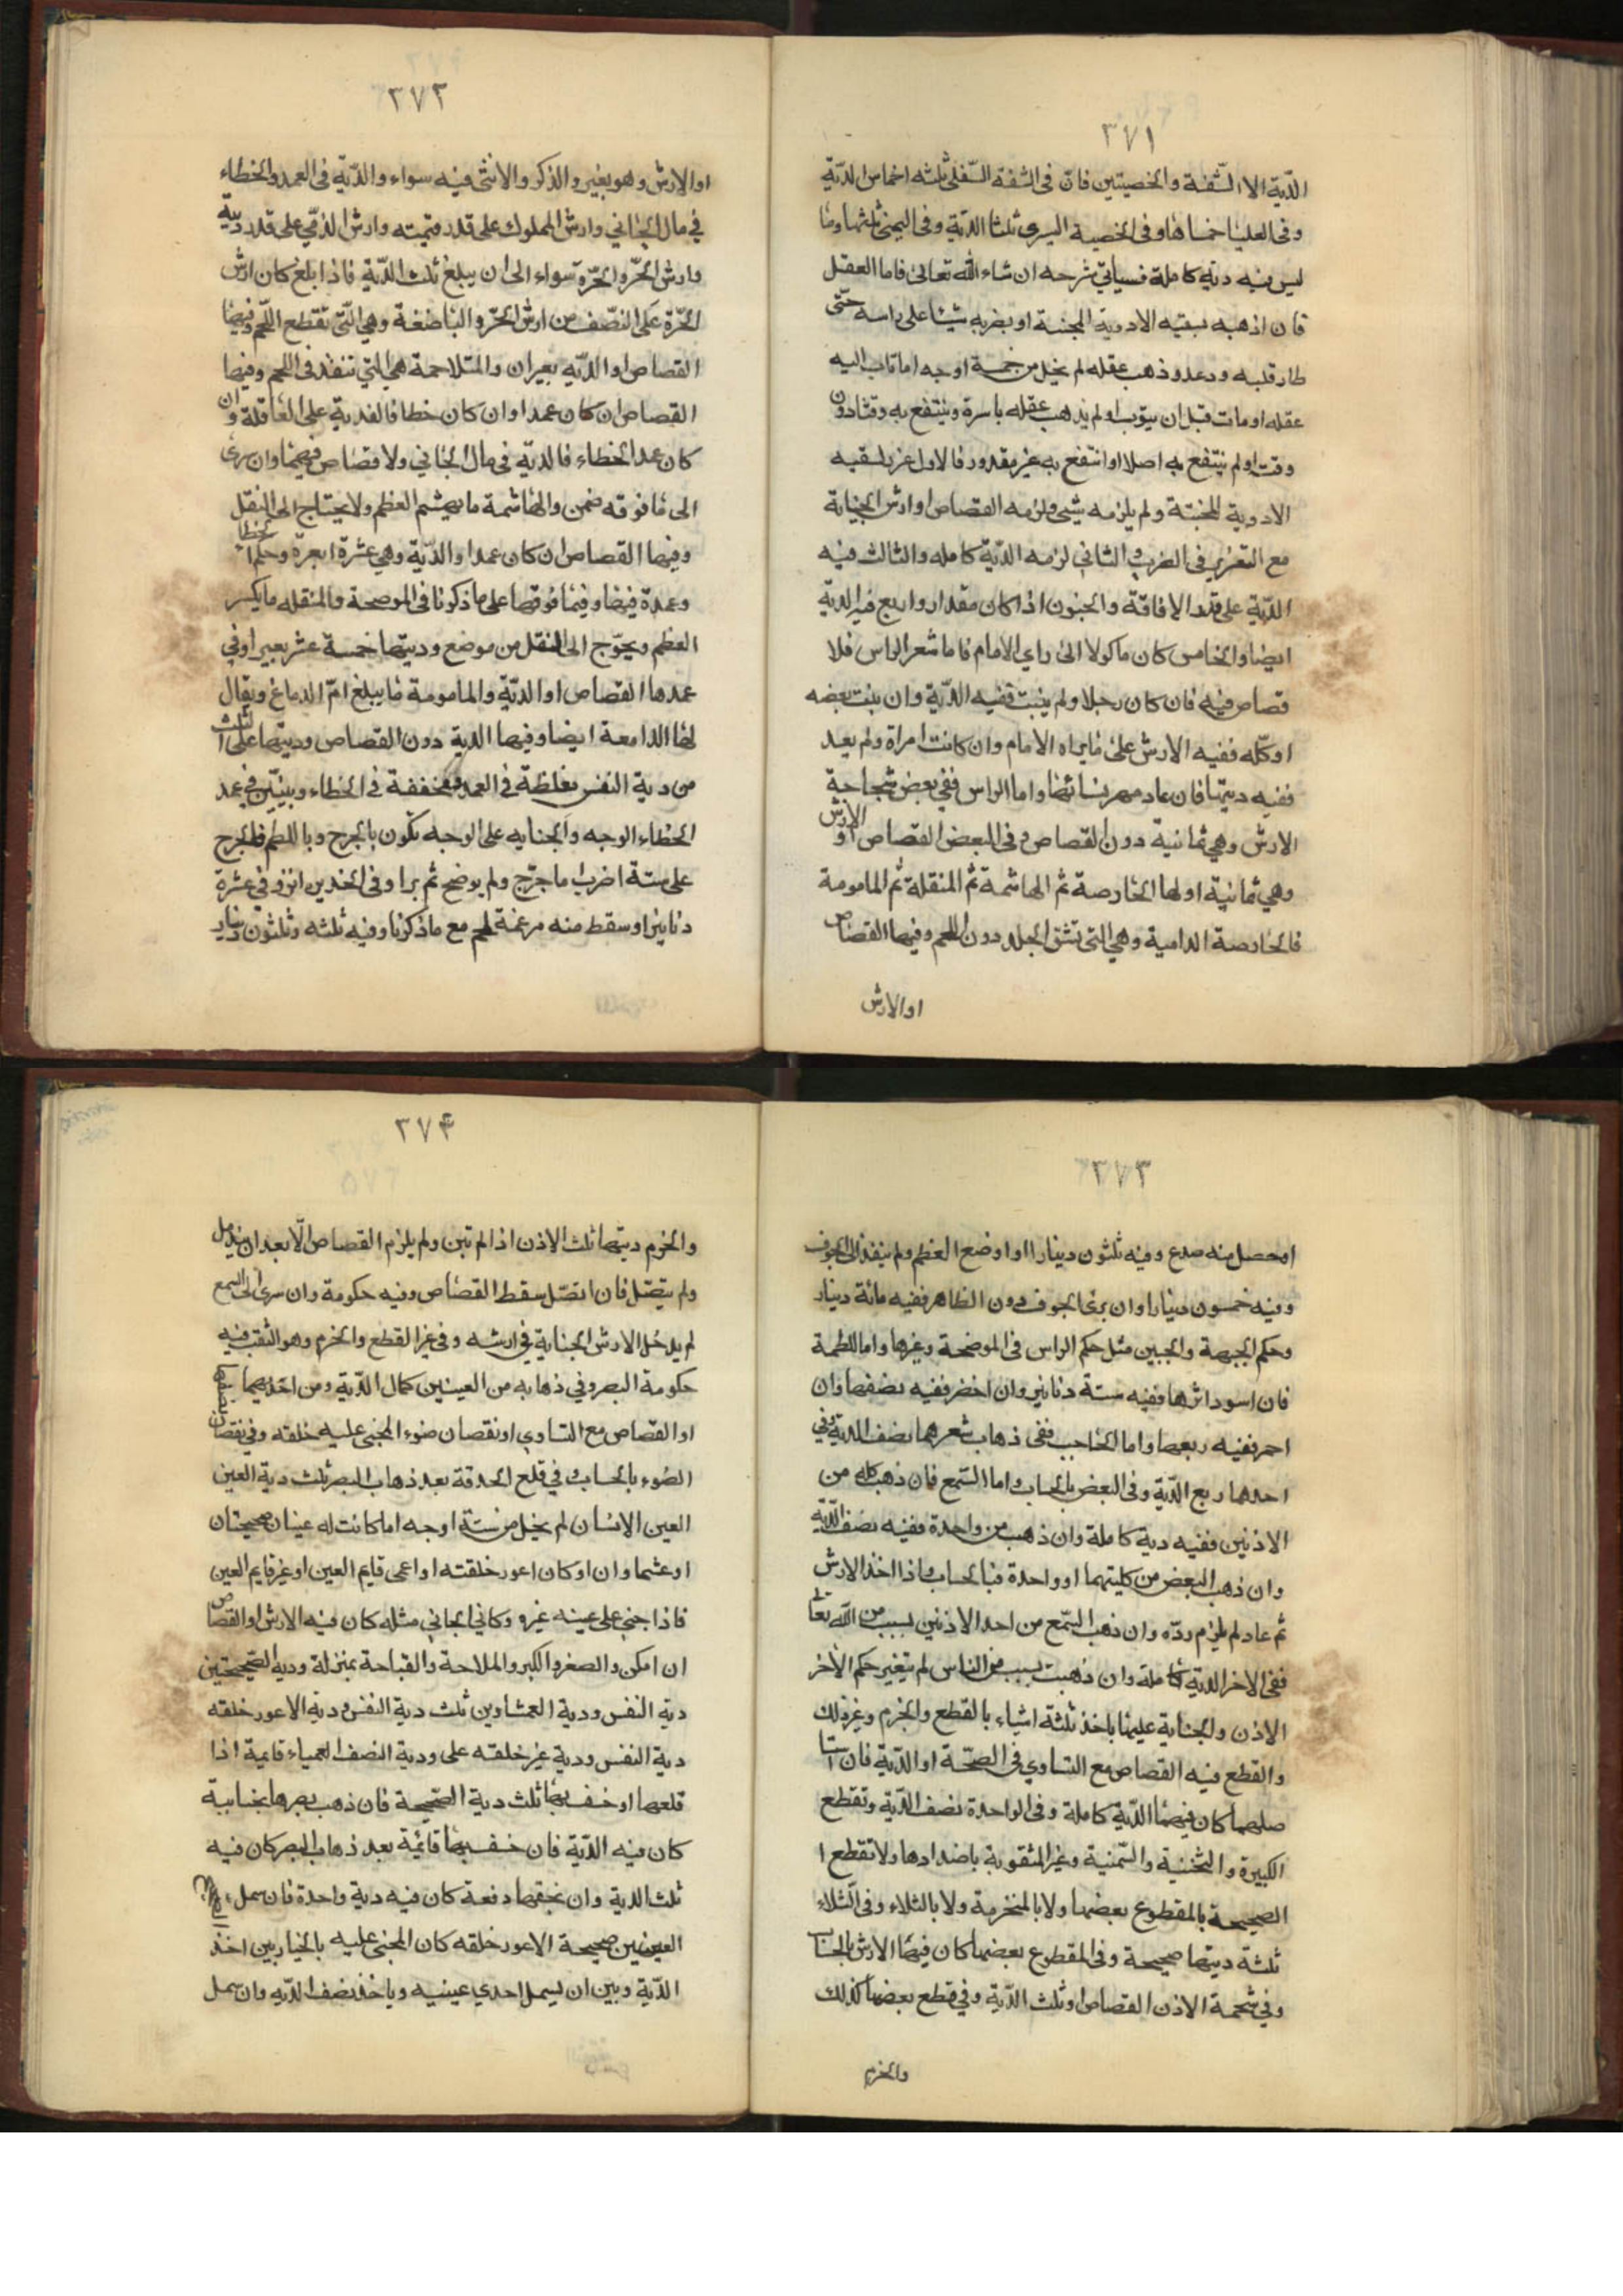 ٣٧١
الدّية الا الشّفة والخصيتين فان فى الشفة السّفلى ثلثه اخماس الدّية
وفى العليا خمساها وفى الخصية اليسرى ثلثا الدّية وفى اليمنى ثلثها وما
ليس فيه دية كاملة فسياتى شرحه ان شاء الله تعالى فاما العقل
فان اذهبه بسقيه الادوية المجننة او بضربه شيئا على راسه حتّى
طار قلبه ودعد وذهب عقله لم يخل من خمسة اوجه اما ثاب اليه
عقله او مات قبل ان يتوب او لم يذهب عقله باسرة وينتفع به وقتا دون
وقت او لم ينتفع به اصلا او انتفع به غير مقدور فالاول عزر لسقيه
الادوية المجنّنة ولم يلزمه شيئ ولزمه القصاص او ارش الجناية
مع التعزير فى الضرب والثاني لزمه الدّية كامله والثالث فيه
الدّية على قدر الافاقة والجنون اذا كان مقدارا والرابع فيه الدية
ايضا والخامس كان ماكولا الى راي الامام فاما شعر الراس فلا
قصاص فيه فان كان رجلا ولم ينبت ففيه الدّية وان نبت بعضه
او كلّه ففيه الارش على ما يراه الامام وان كانت امراة ولم يعد
ففيه ديتها فان عاد مهر نسائها واما الراس ففي بعض شجاجه
الارش وهي ثمانية دون القصاص وفى البعض القصاص او الارش
وهي ثمانية اولها الخارصة ثم الهاشمة ثم المنقلة ثم المامومة
فالخارصة الدامية وهي التي تشق الجلد دون اللحم وفيها القصاص
او الارش
٣٧٢
او الارش وهو بغير والذكر والانثى فيه سواء والدّية فى العمد والخطاء
في مال الجاني وارش المملوك على قدر قيمته وارش الذمّي على قدر ديّة
وارش الحرّ والحرّة سواء الى ان يبلغ ثلث الدّية فاذا بلغ كان ارش
الحرّة على النصّف من ارش الحرّ والباضغة وهي الّتى تقطع اللّحم وفيها
القصاص او الدّيه بعيران والمتلاحمة هي التي تنفذ فى اللحم وفيها
القصاص ان كان عمدا وان كان خطا فالفدية على العاقلة وان
كان عمد الخطاء فالدية في مال الجاني ولا قصاص فيهما وان سرى
الى ما فوقه ضمن والهاشمة ما يهشم العظم ولا يحتاج الى النقل
وفيها القصاص ان كان عمدا والدّية وهي عشرة ابعرة وحكم الخطا
وعمدة فيها وفيما فوقها على ما ذكرنا فى الموضحة والمنقله ما يكسر
العظم ويحوّج الى النقل من موضع وديتها خمسة عشر بعيرا وفي
عمدها القصاص او الدّية والمامومة ما يبلغ امّ الدماغ ويقال
لها الدامعة ايضا وفيها الدية دون القصاص وديتها على الثلث
من دية النفس مغلظة في العمد ومخففة في الخطاء وبينّين في عمد
الخطاء الوجه والجنايه على الوجه تكون بالجرح وباللطم فالجرح
على ستة اضرب ما جرح ولم يوضح ثم برا وفى الخدين انزو في عشرة
دنانير او سقط منه مرغمة لحم مع ما ذكرنا وفيه ثلثه وثلثون دينار
٣٧٣
او حصل منه صدع وفيه ثلثون دينارا او اوضح العظم ولم ينفذ الى الجوف
وفيه خمسون دينارا وان برئ الجوف دون الظاهر ففيه مائة دينار
وحكم الجبهة والجبين مثل حكم الراس فى الموضحة وغيرها واما اللطمة
فان اسود اثرها ففيه ستة دنانير وان اخضر ففيه نصفها وان
احمر ففيه ربعها واما الحاجب ففى ذهاب شعرهما نصف الدية وفي
احدهما ربع الدّية وفى البعض بالحساب واما السّمع فان ذهب كله من
الاذنين ففيه دية كاملة وان ذهب من واحدة ففيه نصف الدّية
وان ذهب البعض من كلتيهما او واحدة فبالحساب واذا اخذ الارش
ثم عاد لم يلزم ردّه وان ذهب السّمع من احد الاذنين بسبب من الله تعا
ففى الاخر الدية كاملة وان ذهبت بسبب من الناس لم يتغير حكم الاخر
الاذن والجناية عليها باخذ ثلثة اشياء بالقطع والخرم وغير ذلك
والقطع فيه القصاص مع التساوي فى الصحّة او الدّية فان استا
صلهما كان فيهما الدّية كاملة وفى الواحدة نصف الدّية وتقطع
الكبيرة والثخنية والسّمنية وغير المثقوبة باضدادها ولا تقطع ا
الصحيحة بالمقطوع بعضها ولا بالمنخرمة ولا بالشلاء وفى الشّلاء
ثلثة ديتها صحيحة وفى المقطوع بعضها كان فيها الارش بالحساب
وفي شحمة الاذن القصاص او ثلث الدّية وفي قطع بعضها كذلك
والخرم
٣٧٤
والخرم ديتها ثلث الاذن اذا لم تبن ولم يلزم القصاص الّا بعد ان يندمل
ولم يتصل فان اتصّل سقط القصاص وفيه حكومة وان سرى الى السمع
لم يدخل الارش الجناية في ارشه وفى غير القطع والخرم وهو الثقب فيه
حكومة البصر وفي ذهابه من العينين كمال الدّية ومن احديهما نصفها
او القصاص مع التساوي او نقصان ضوء المجنى عليه خلقه وفي نقصان
الضوء بالحساب وفي قلع الحدقة بعد ذهاب البصر ثلث دية العين
العين الانسان لم يخل من ستة اوجه اما كانت له عينان صحيحتان
او عشماوان او كان اعور خلقته او اعمى قايم العين او غير قايم العين
فاذا جنى على عينه غيره وكاني الجاني مثله كان فيه الارش او القصاص
ان امكن والصغر والكبر والملاحة والقباحة بمنزلة ودية الصّحيحتين
دية النفس ودية العمشاوين ثلث دية النفس ودية الاعور خلقته
دية النفس ودية غير خلقته على ودية النصف العمياء قايمة اذا
قلعها او خسف بها ثلث دية الصّحيحة فان ذهب بصرها بجناية
كان فيه الدّية فان خسف بها قائمة بعد ذهاب البصر كان فيه
ثلث الدية وان نجقها دفعة كان فيه دية واحدة فان سمل
العينين صحيحة الاعور خلقه كان المجنى عليه بالخيار بين اخذ
الدّية وبين ان يسمل احدي عينيه وياخذ نصف الدّيه وان سمل